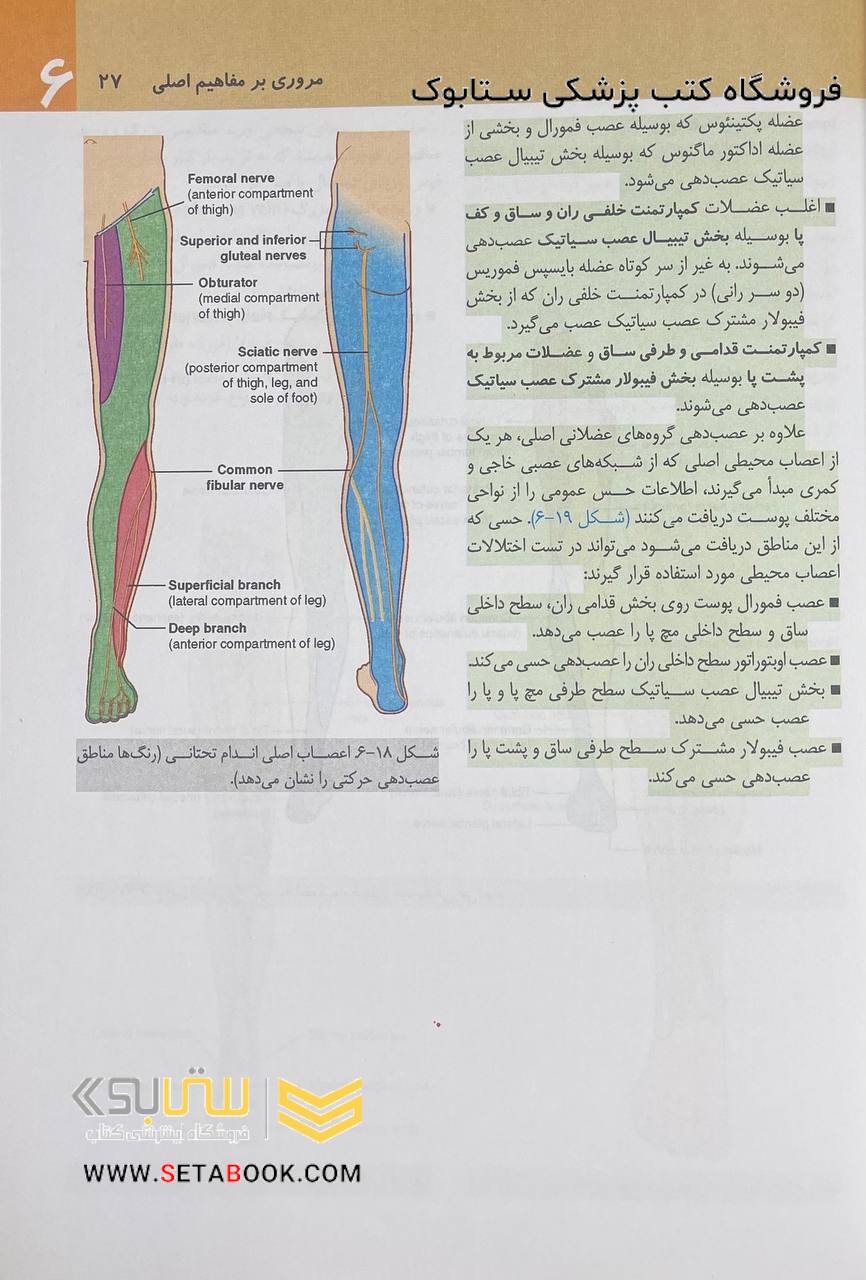 فروشگاه کتب پزشکی ستابوک
مروری بر مفاهیم اصلی ۲۷
۶
عضله پکتینئوس که بوسیله عصب فمورال و بخشی از
عضله اداکتور ماگنوس که بوسیله بخش تیبیال عصب
سیاتیک عصب‌دهی می‌شود.
■ اغلب عضلات کمپارتمنت خلفی ران و ساق و کف
پا بوسیله بخش تیبیال عصب سیاتیک عصب‌دهی
می‌شوند. به غیر از سر کوتاه عضله بایسپس فموریس
(دو سر رانی) در کمپارتمنت خلفی ران که از بخش
فیبولار مشترک عصب سیاتیک عصب می‌گیرد.
■ کمپارتمنت قدامی و طرفی ساق و عضلات مربوط به
پشت پا بوسیله بخش فیبولار مشترک عصب سیاتیک
عصب‌دهی می‌شوند.
علاوه بر عصب‌دهی گروه‌های عضلانی اصلی، هر یک
از اعصاب محیطی اصلی که از شبکه‌های عصبی خاجی و
کمری مبدأ می‌گیرند، اطلاعات حس عمومی را از نواحی
مختلف پوست دریافت می‌کنند (شکل ۱۹-۶). حسی که
از این مناطق دریافت می‌شود می‌تواند در تست اختلالات
اعصاب محیطی مورد استفاده قرار گیرند:
■ عصب فمورال پوست روی بخش قدامی ران، سطح داخلی
ساق و سطح داخلی مچ پا را عصب می‌دهد.
■ عصب اوبتوراتور سطح داخلی ران را عصب‌دهی حسی می‌کند.
■ بخش تیبیال عصب سیاتیک سطح طرفی مچ پا و پا را
عصب حسی می‌دهد.
■ عصب فیبولار مشترک سطح طرفی ساق و پشت پا را
عصب‌دهی حسی می‌کند.
Femoral nerve
(anterior compartment
of thigh)
Superior and inferior
gluteal nerves
Obturator
(medial compartment
of thigh)
Sciatic nerve
(posterior compartment
of thigh, leg, and
sole of foot)
Common
fibular nerve
Superficial branch
(lateral compartment of leg)
Deep branch
(anterior compartment of leg)
شکل ۱۸-۶. اعصاب اصلی اندام تحتانی (رنگ‌ها مناطق
عصب‌دهی حرکتی را نشان می‌دهد).
ستابوک
فروشگاه اینترنتی کتاب
WWW.SETABOOK.COM